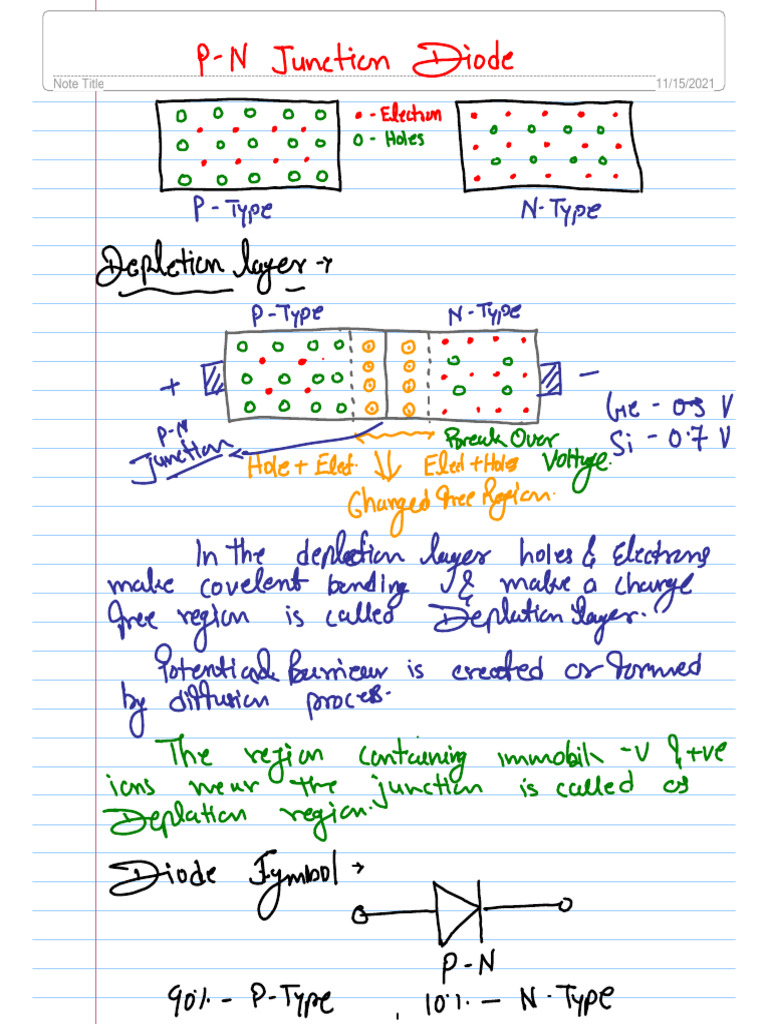 P-N Junction Diode
Note Title
11/15/2021
• - Election
o - Holes
P-Type
N-Type
Depletion layer →
P-Type
N-Type
+
-
Ge - 0.3 V
Si - 0.7 V
P-N
Junction
Break Over
Voltage.
Hole + Elet.
Elect + Hole
Charged free Region.
In the depletion layer holes & Electrons
make covelent bending & make a charge
free region is called Deplation layer.
Potential Barrieur is created or formed
by diffusion proces.
The region containing immobile -v & +ve
ions near the junction is called as
Deplation region.
Diode Symbol →
P-N
90% - P-Type , 10% - N-Type